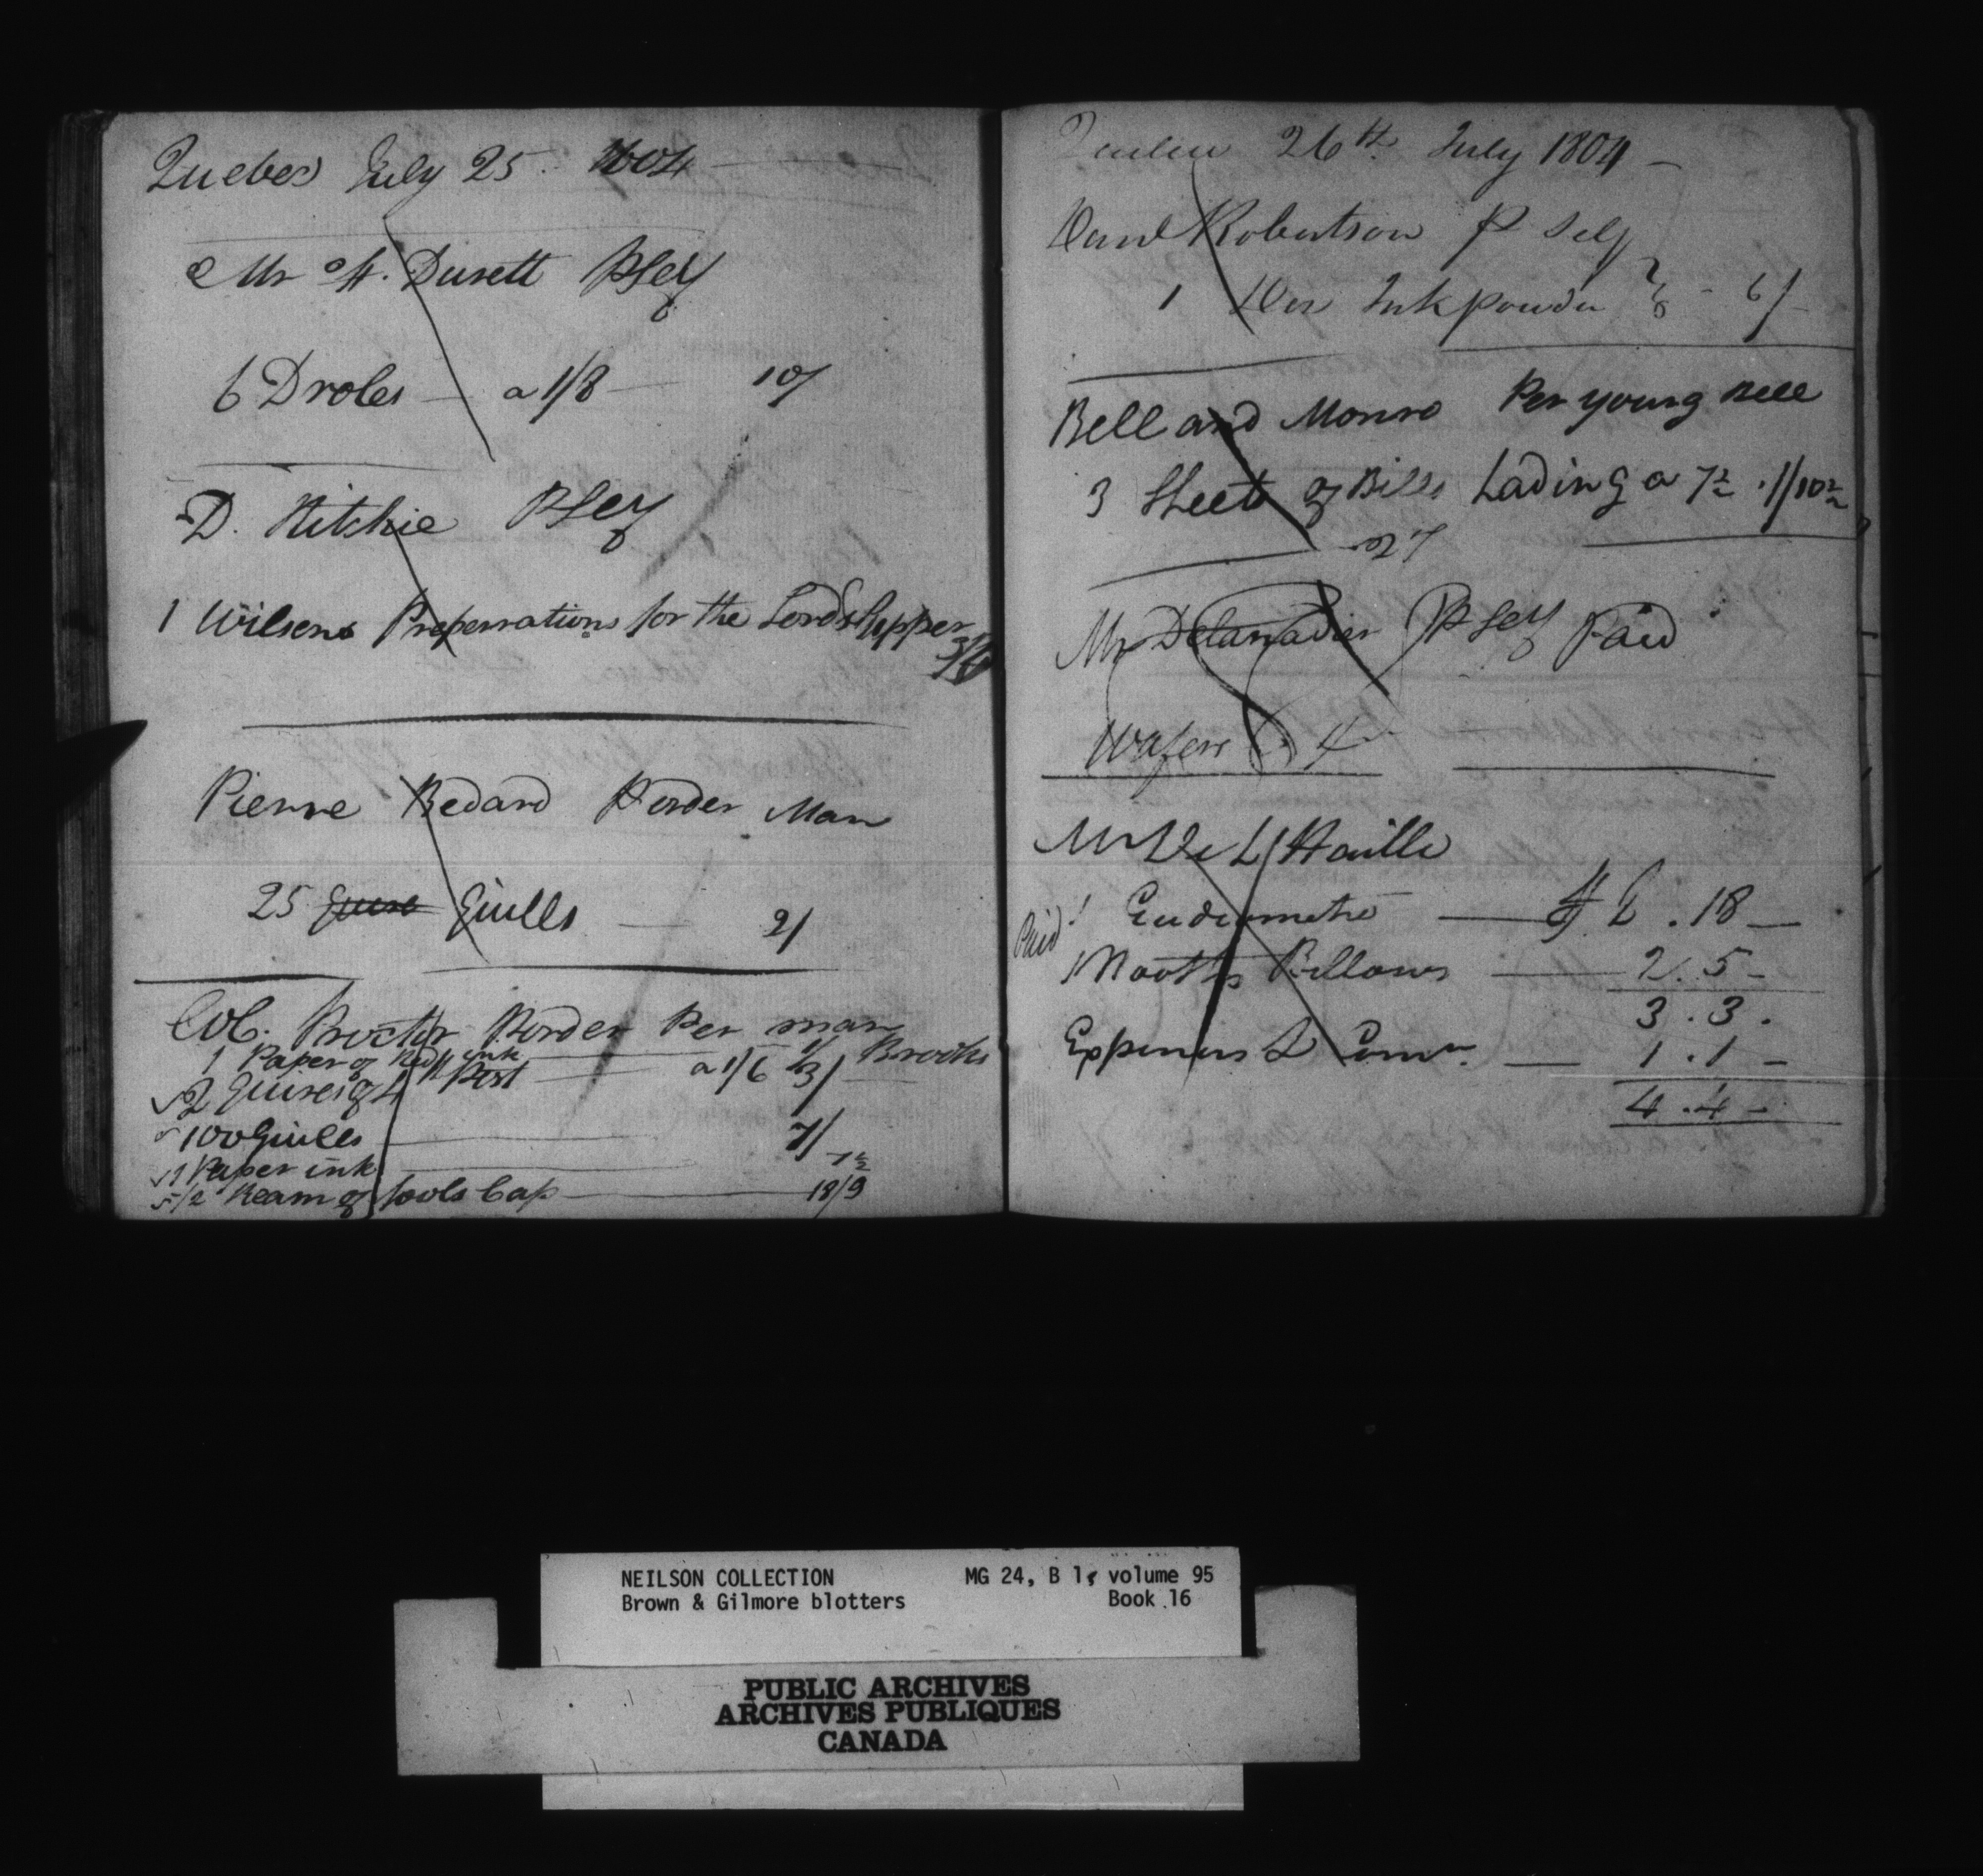 Quebec July 25 1804
Mr A. Durett P Self
6 Droles a 1/8 10/
D. Ritchie P Self
1 Wilsons Preperrations for the Lords Supper
Pierre Bedard P order Man
25 Quills 2/
Col. Proctor P order Per man Brooks
1 Paper of Red ink 1/
2 Quires of Post a 1/6 3/
100 Quills 7/
1 Paper ink 7½
1/2 Ream of fools Cap 18/9
Quebec 26th July 1804
Robertson P Self
1 Doz Ink powder 6/
Bell and Monro Per young Bell
3 Sheets of Bills Lading a 7½ 1/10½
27
Mr P Self Paid
Wafers 4
Mr De L Haille
Paid
1 Eudiometre £ . 18
1 Nooths Bellows 2 . 5
3 . 3 .
Expences & Comn. 1 . 1
4 . 4
NEILSON COLLECTION MG 24, B 1, volume 95
Brown & Gilmore blotters Book 16
PUBLIC ARCHIVES
ARCHIVES PUBLIQUES
CANADA